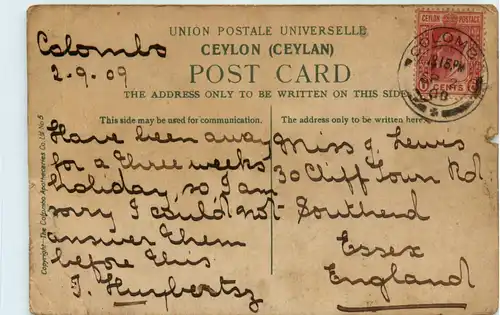 UNION POSTALE UNIVERSELLE
CEYLON (CEYLAN)
POST CARD
THE ADDRESS ONLY TO BE WRITTEN ON THIS SIDE
Colombo
2-9.09
CEYLON POSTAGE
6 CENTS 6
COLOMBO
This side may be used for communication.
Have been away
for a three weeks'
holiday, so I am
sorry I could not
answer them
before this
J. Huybertsz
The address only to be written here.
Miss J. Lewis
30 Cliff Town Rd.
Southend
Essex
England
Copyright—The Colombo Apothecaries Co. Ltd No 5